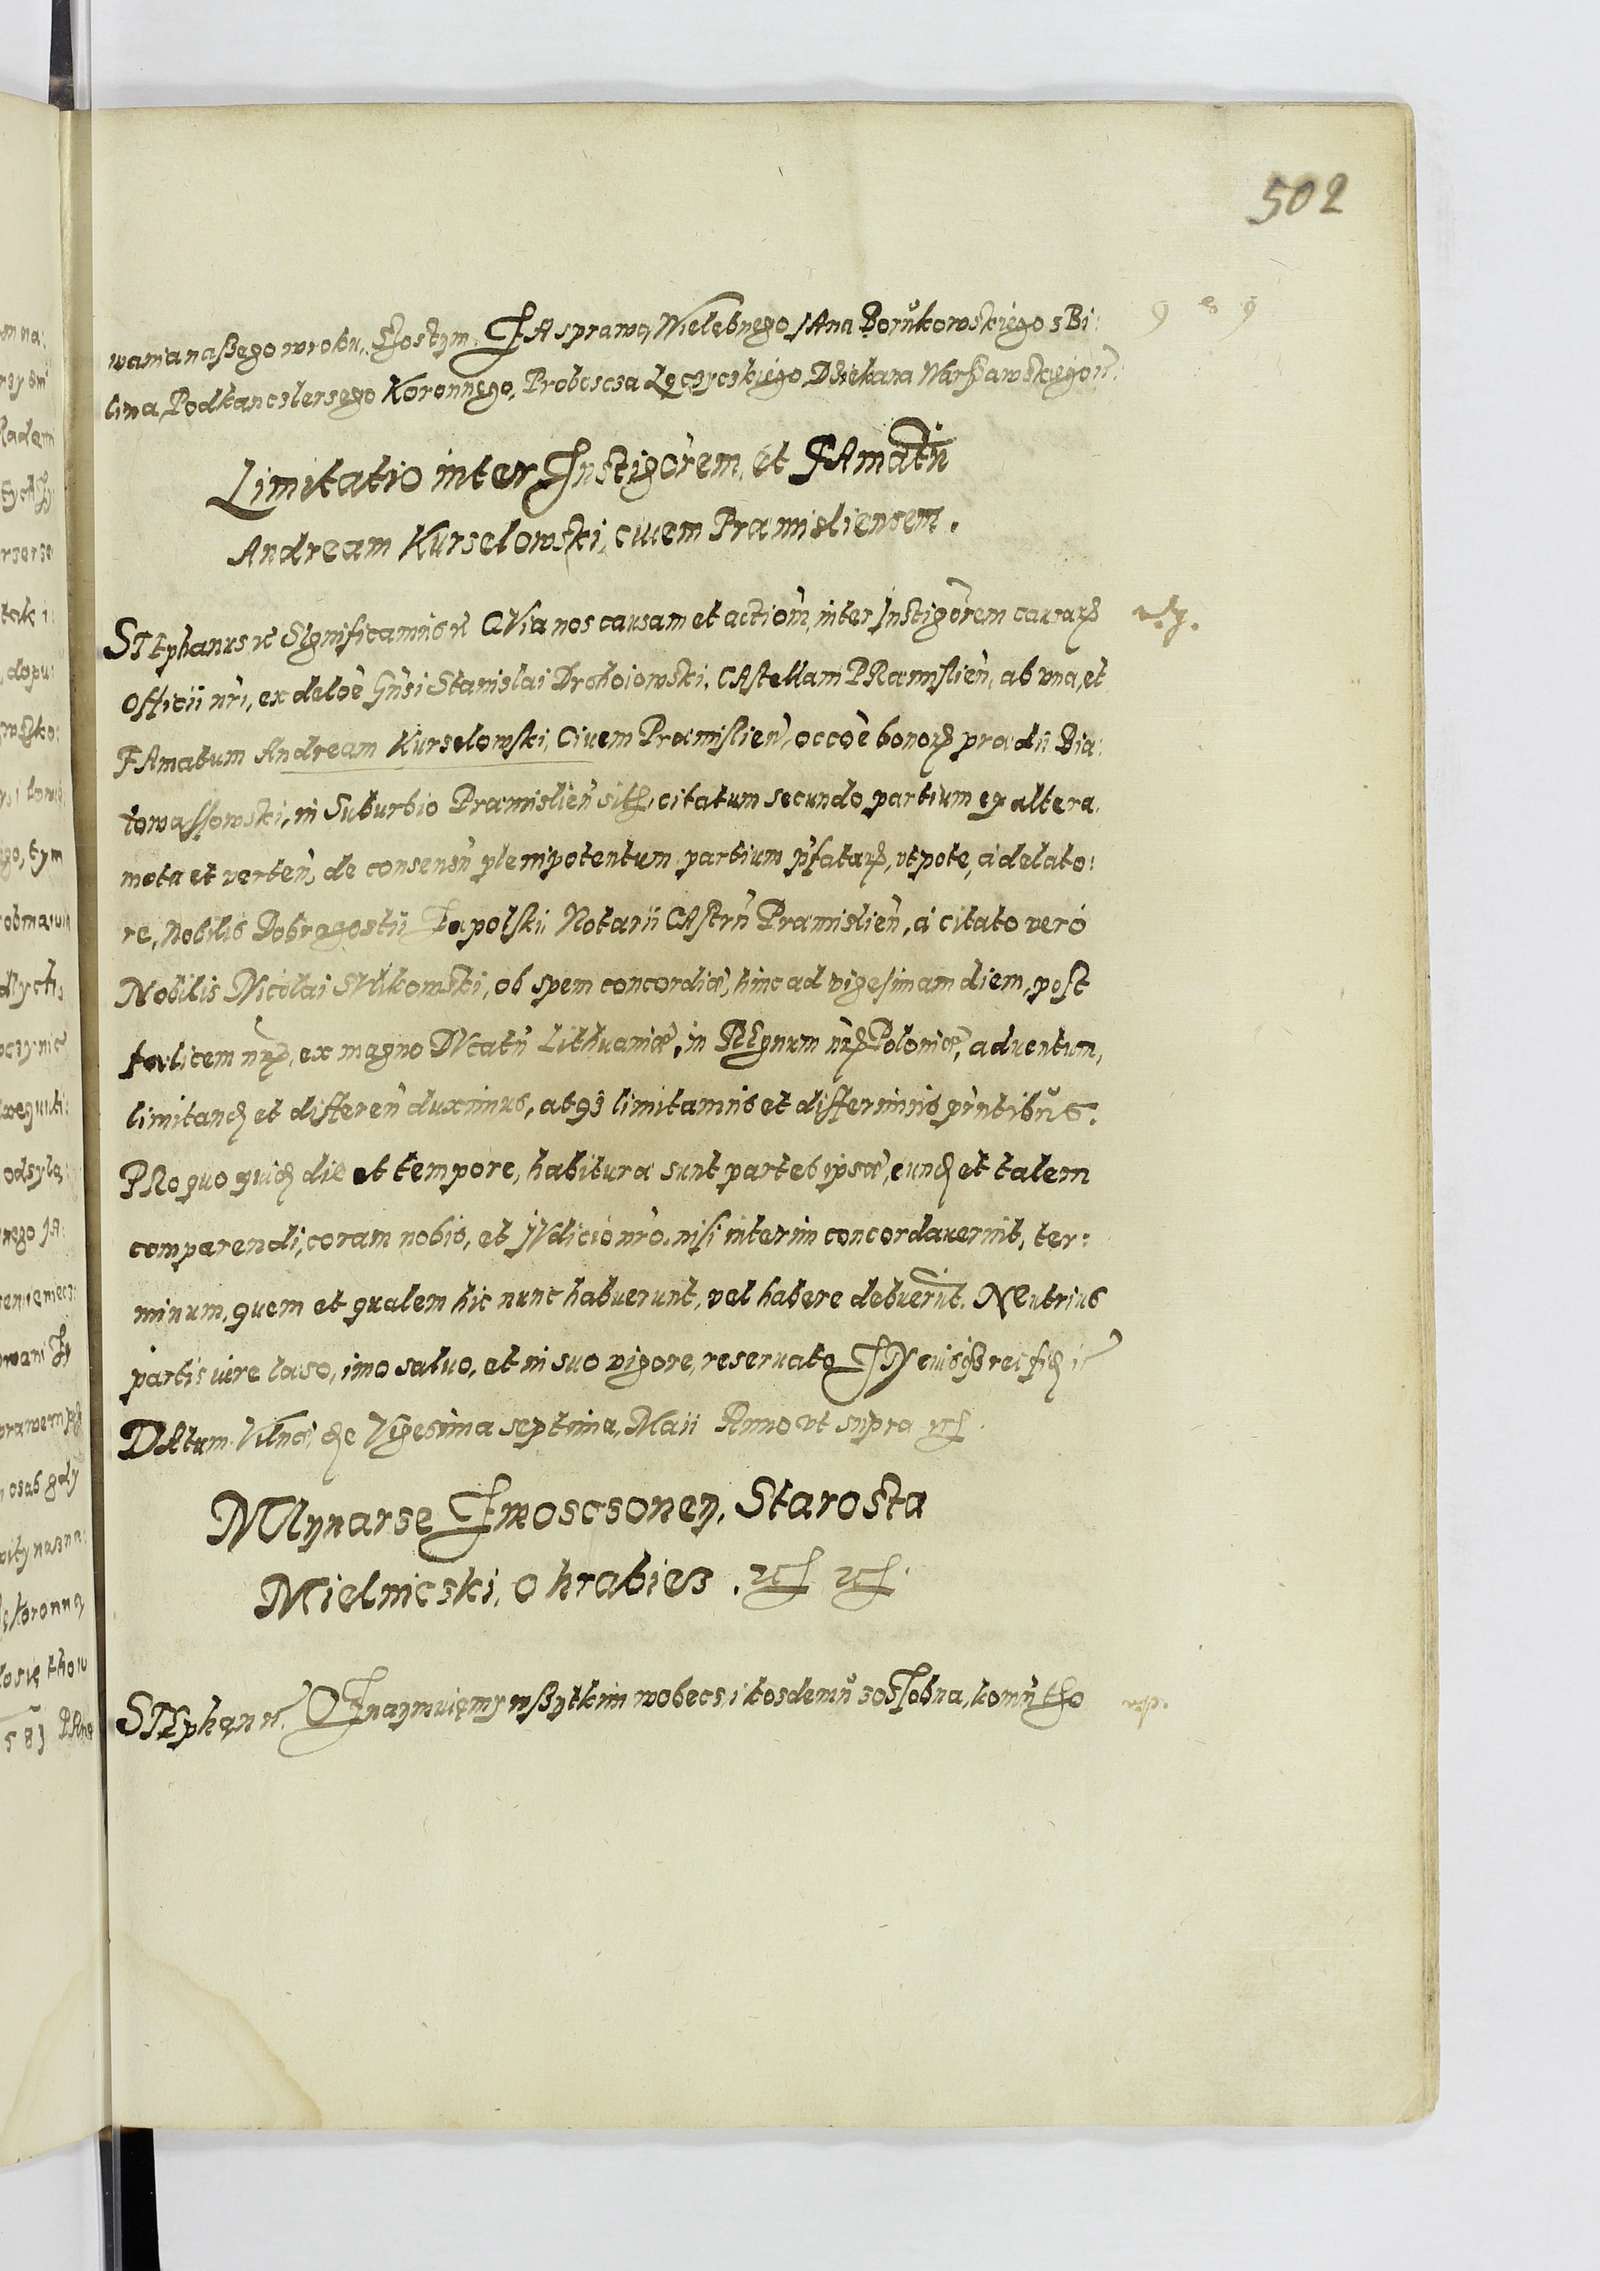 502
waniа naßego w roku, Szostym. ZA sprawą Wielebnego JAna Borŭkowskiego z Bi:
lina, Podkanczlerzego Koronnego, Probosczа Łęczyczkiego, Dziekana Warszawskiego
Limitatio inter Instigorem, et FAmatũ
Andream Kurzelowski, ciuem Præmisliensem.
STEphanus Significamus QVia nos causam et actiom inter Instigorem causarum
Officii nri, ex deloe Gnsi Stanislai Drohoiowski, CAstellani PRæmislien, ab vna, et
FAmatum Andream Kurzelowski, Ciuem Præmislien, occoe bonorum prædii Bia:
towassowski, in Suburbio Præmislien sit. citatum secundo, partium ex altera.
mota et verten, de consensu plenipotentum partium pfatarum, vtpote, à delato:
re, Nobilis Dobrogostii Zapolski Notarii CAstrn Præmislien, à citato verò
Nobilis Nicolai SUlikowski, ob spem concordiæ, hinc ad vigesimam diem, post
fælicem nrum, ex magno DVcatu Lithuaniæ, in REgnum nrum Poloniæ, aduentum,
limitand et differen duximus, atq3 limitamus et differimus pntibus.
PRo quo quid die et tempore, habituræ sunt partes ipsæ, eund et talem
comparendi, coram nobis, et JVdicio nro, nisi interim concordauerint, ter:
minum, quem et qualem hic nunc habuerunt, vel habere debuerũt. NEutrius
partis iure læso, imo saluo, et in suo vigore, reseruato IN cuius rei fid
DAtum Vilnæ, die Vigesima septima, Maii Anno vt supra
Mlynarze Zamosczoney, Starosta
Mielniczski, o hrabiez.
STEphan OZnaymuięmy wßytkim wobecz, i kozdemŭ zosobna, komu tho